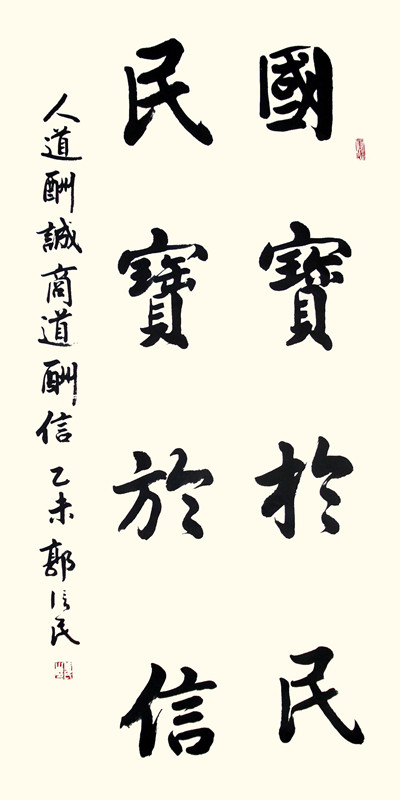 國寶於民
民寶於信
人道酬誠商道酬信 乙未 郭信民